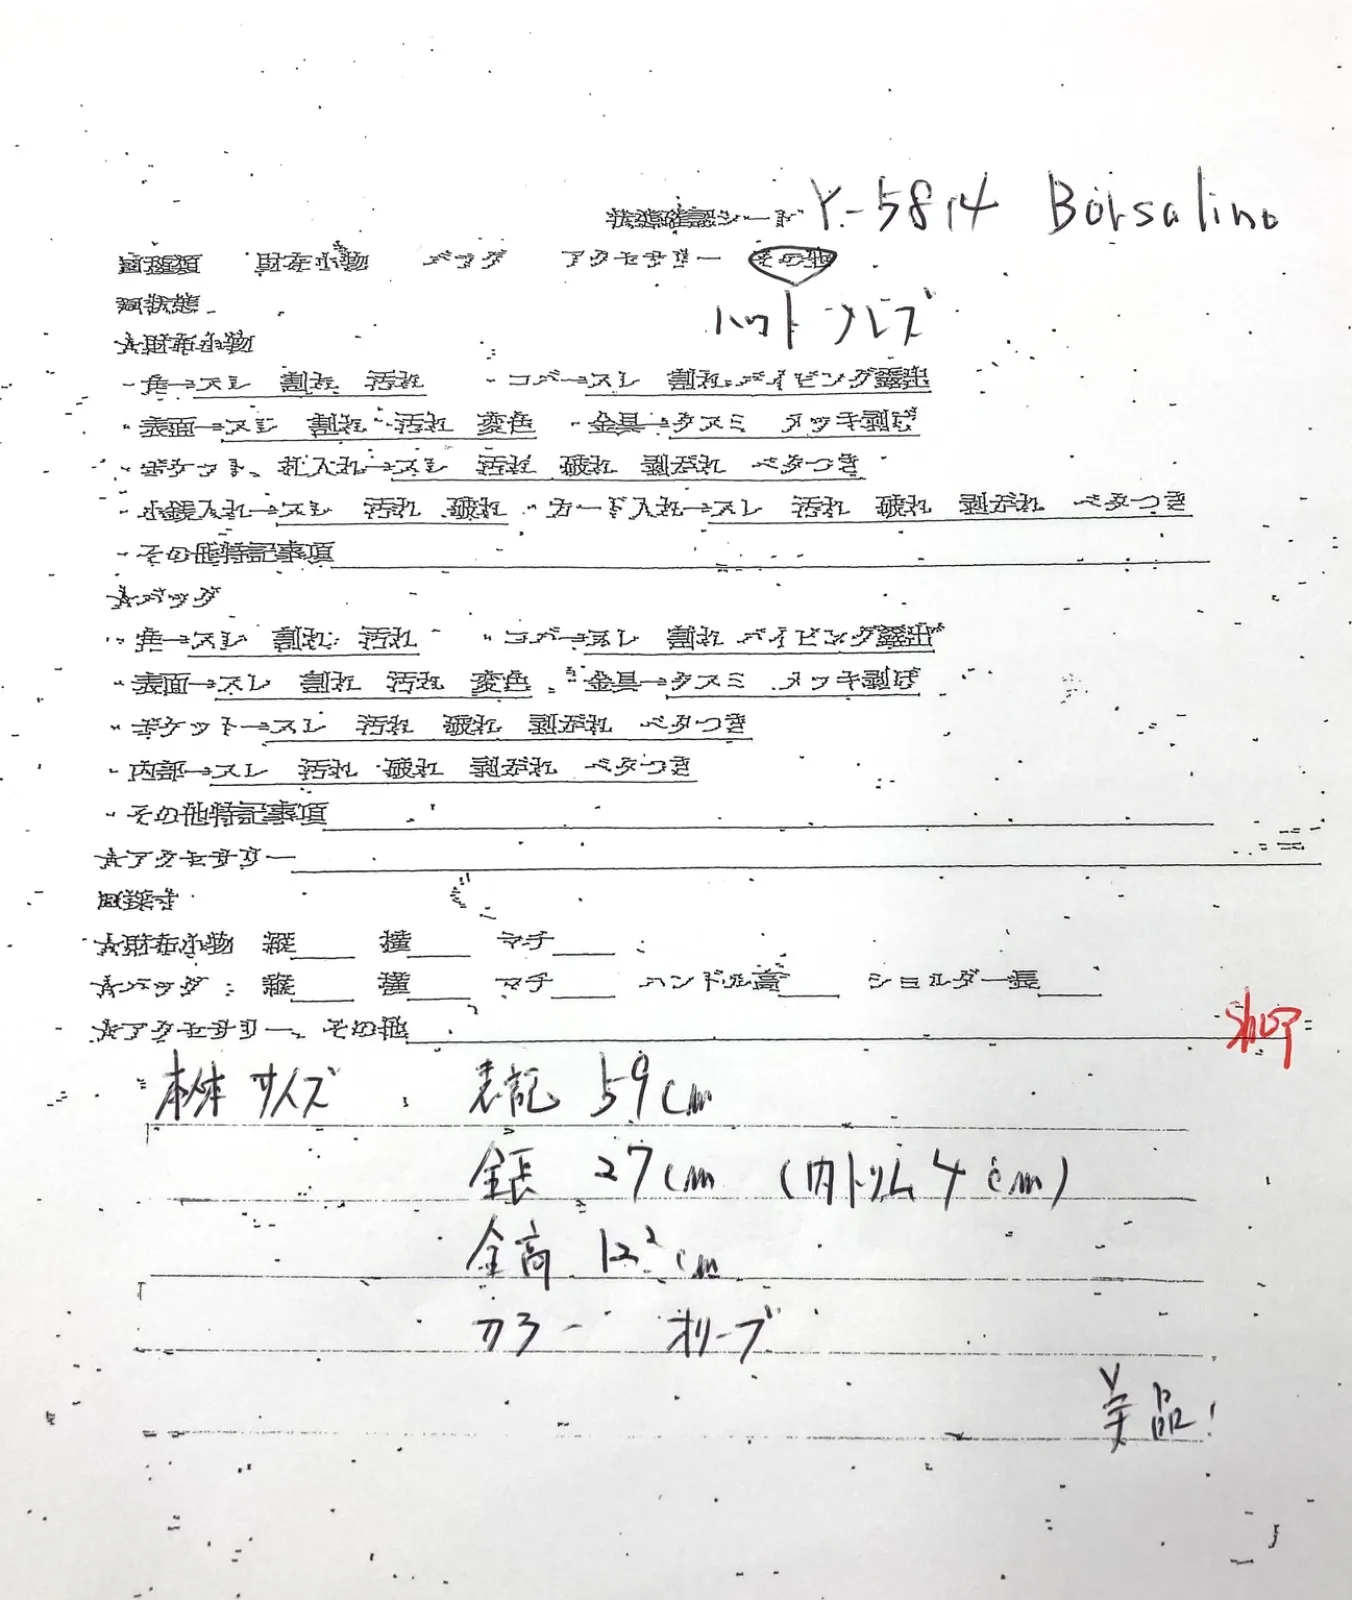 状態確認シート Y-5814 Borsalino
財布小物 バッグ アクセサリー その他
回状態 ハット
☆財布小物
・角→スレ 割れ 汚れ ・コバ→スレ 割れ パイピング露出
・表面→スレ 割れ 汚れ 変色 ・金具→クスミ メッキ剥げ
・ポケット、札入れ→スレ 汚れ 破れ 剥がれ ベタつき
・小銭入れ→スレ 汚れ 破れ ・カード入れ→スレ 汚れ 破れ 剥がれ ベタつき
・その他特記事項
☆バッグ
・角→スレ 割れ 汚れ ・コバ→スレ 割れ パイピング露出
・表面→スレ 割れ 汚れ 変色 ・金具→クスミ メッキ剥げ
・ポケット→スレ 汚れ 破れ 剥がれ ベタつき
・内部→スレ 汚れ 破れ 剥がれ ベタつき
・その他特記事項
☆アクセサリー
回採寸
☆財布小物 縦 横 マチ
☆バッグ: 縦 横 マチ ハンドル高 ショルダー長
☆アクセサリー、その他
本体サイズ 表記 59cm
全長 27cm (内トリム 4cm)
全高 12²cm
カラー オリーブ
美品!